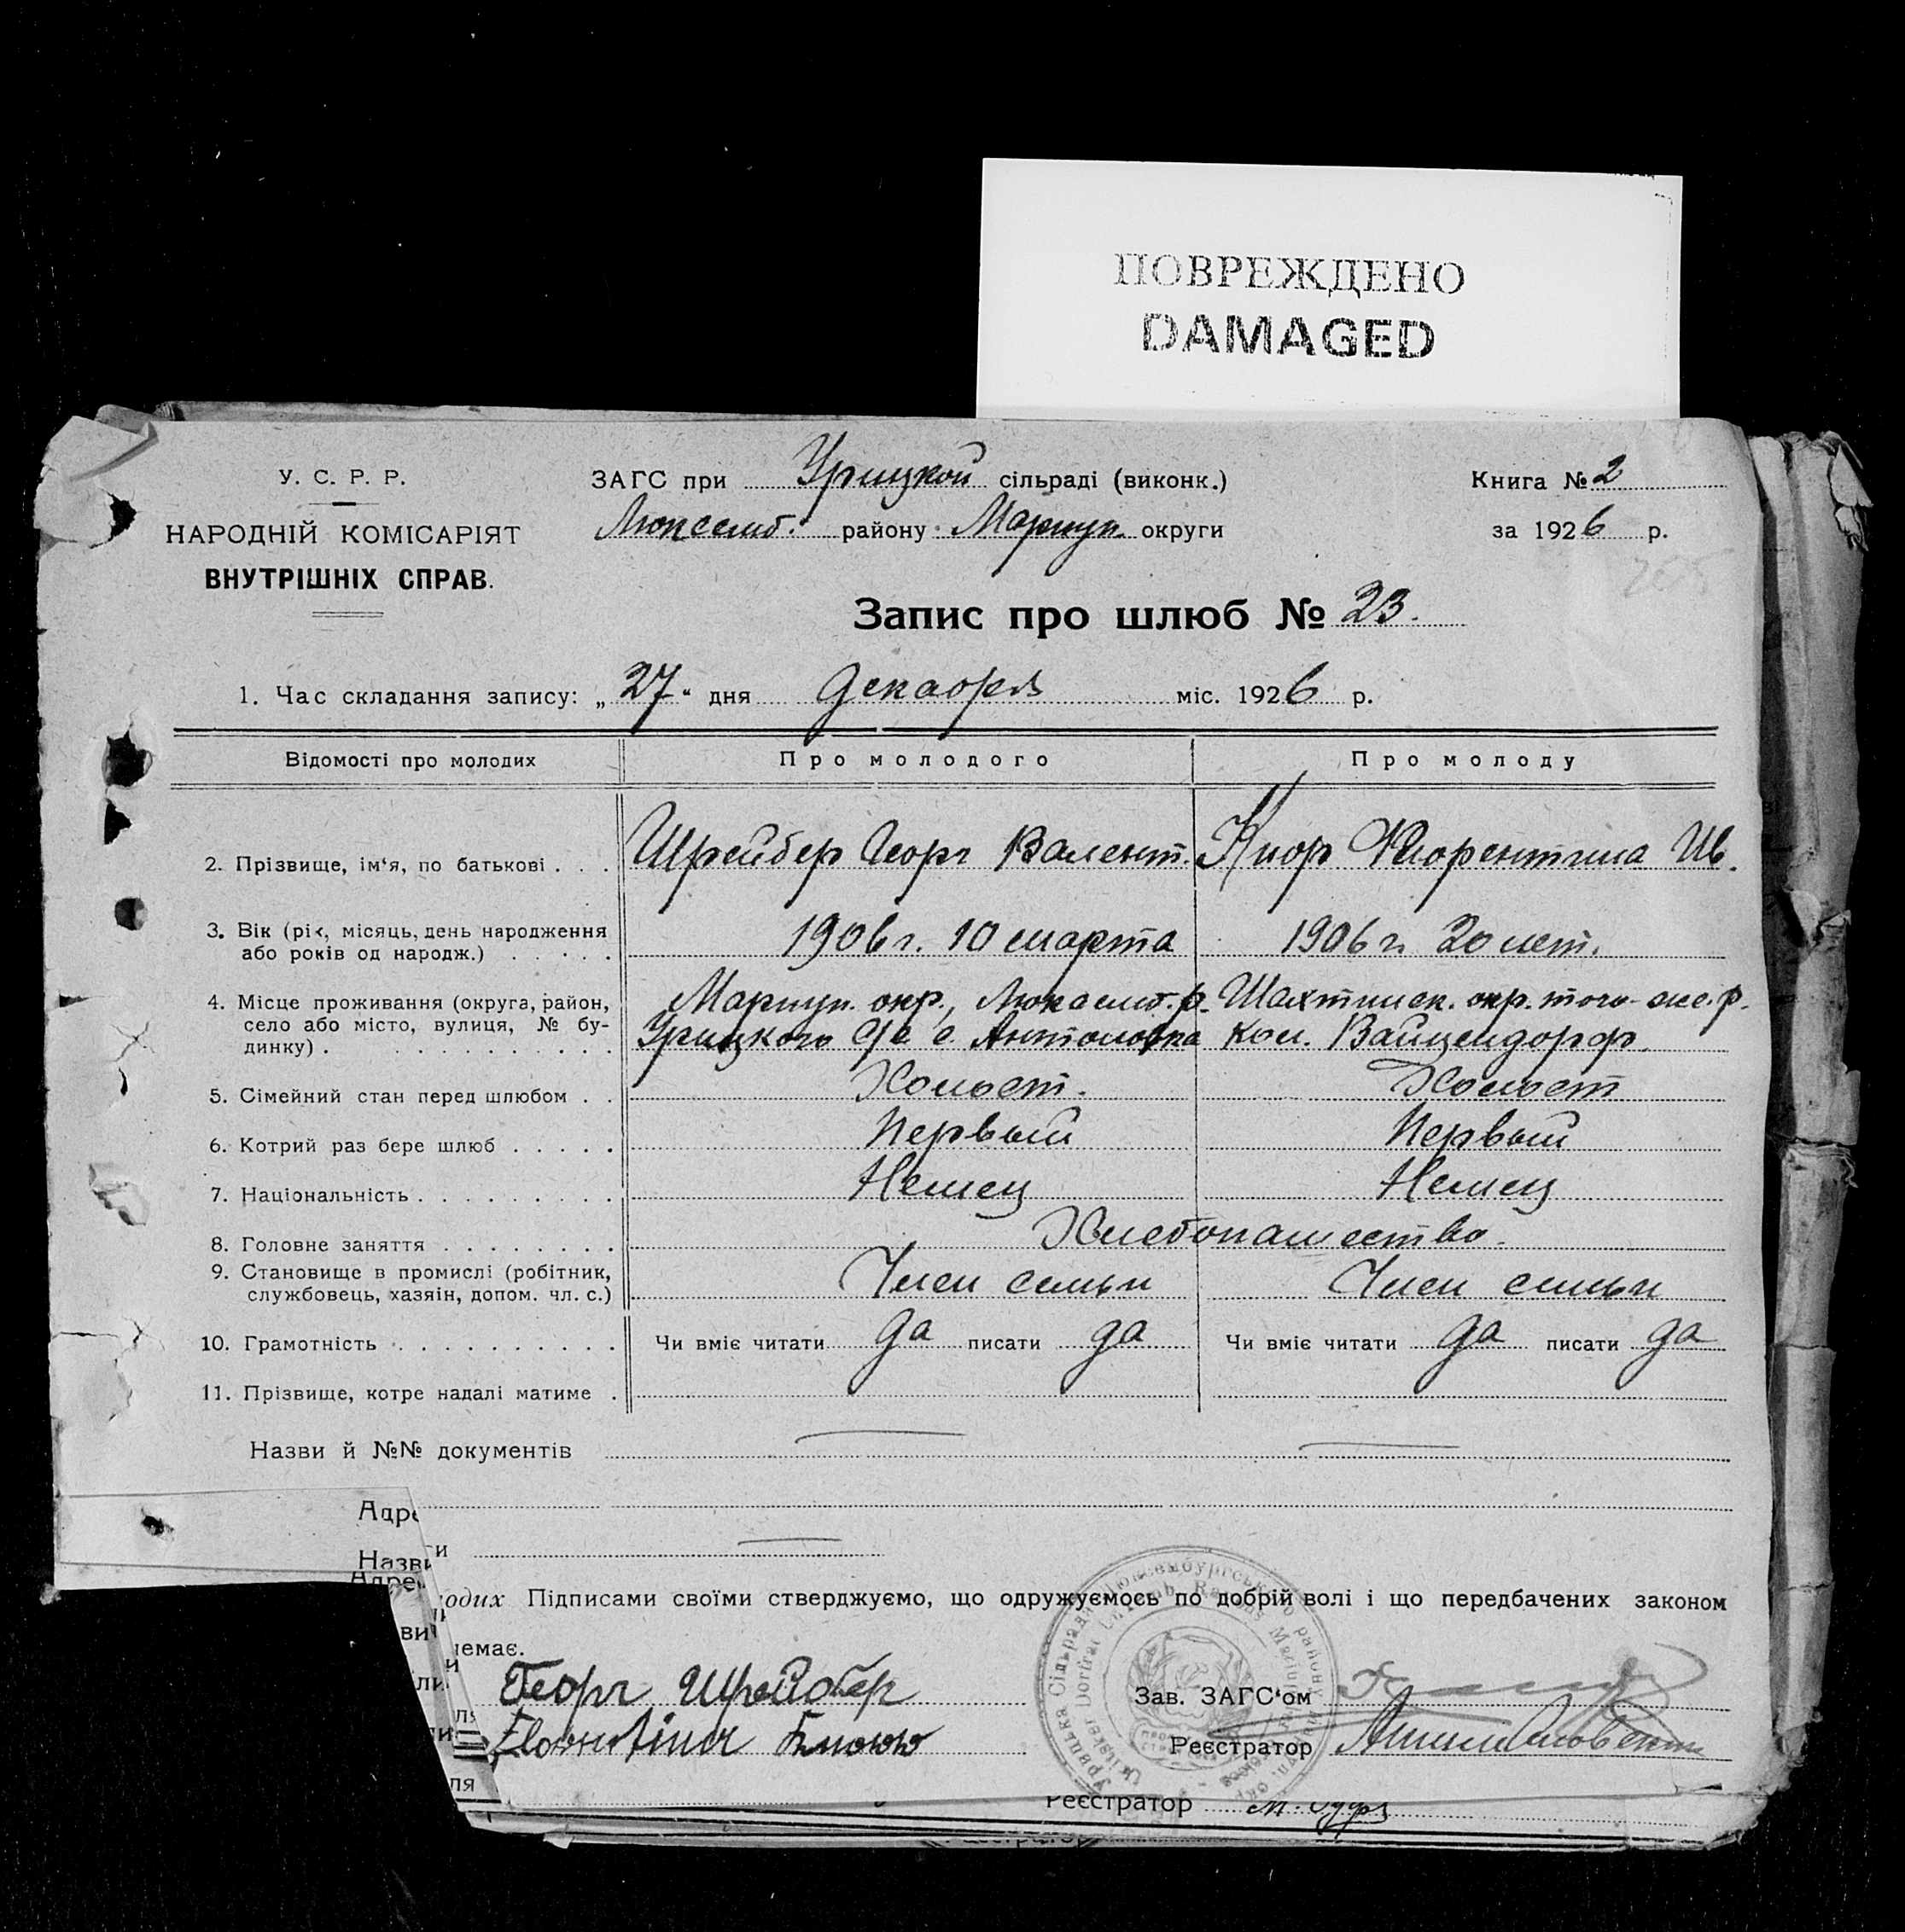 ПОВРЕЖДЕНО
DAMAGED
У. С. Р. Р.
НАРОДНІЙ КОМІСАРІЯТ
ВНУТРІШНІХ СПРАВ.
ЗАГС при Урицкой сільраді (виконк.)
Люксемб. району Мариуп. округи
Книга № 2
за 1926 р.
Запис про шлюб № 23.
1. Час складання запису: „27“ дня декабря міс. 1926 р.
Відомості про молодих Про молодого Про молоду
2. Прізвище, ім‘я, по батькові . . . Шрейбер Георг Валент. Кнор Флорентина Ив.
3. Вік (рік, місяць, день народження
або років од народж.) . . . . . 1906 г. 10 марта 1906 г. 20 лет.
4. Місце проживання (округа, район, Мариуп. окр., Люксемб. р. Шахтинск. окр. того-же. р.
село або місто, вулиця, № бу- Урицкого с. Антоновка кол. Вайцендорф.
динку) . . . . . . . . . . .
5. Сімейний стан перед шлюбом . . Холост. Холост
6. Котрий раз бере шлюб . . . . . Первый Первый
7. Національність . . . . . . . . . Немец Немец
8. Головне заняття . . . . . . . . Хлебопашество.
9. Становище в промислі (робітник,
службовець, хазяїн, допом. чл. с.) Член семьи Член семьи
10. Грамотність . . . . . . . . . . Чи вміє читати да писати да Чи вміє читати да писати да
11. Прізвище, котре надалі матиме .
Назви й №№ документів
Адре
Назви
и
Адре
одих Підписами своїми стверджуємо, що одружуємось по добрій волі і що передбачених законом
немає.
Георг Шрейбер
Зав. ЗАГС‘ом
Florentina Knorr
Реєстратор
Реєстратор